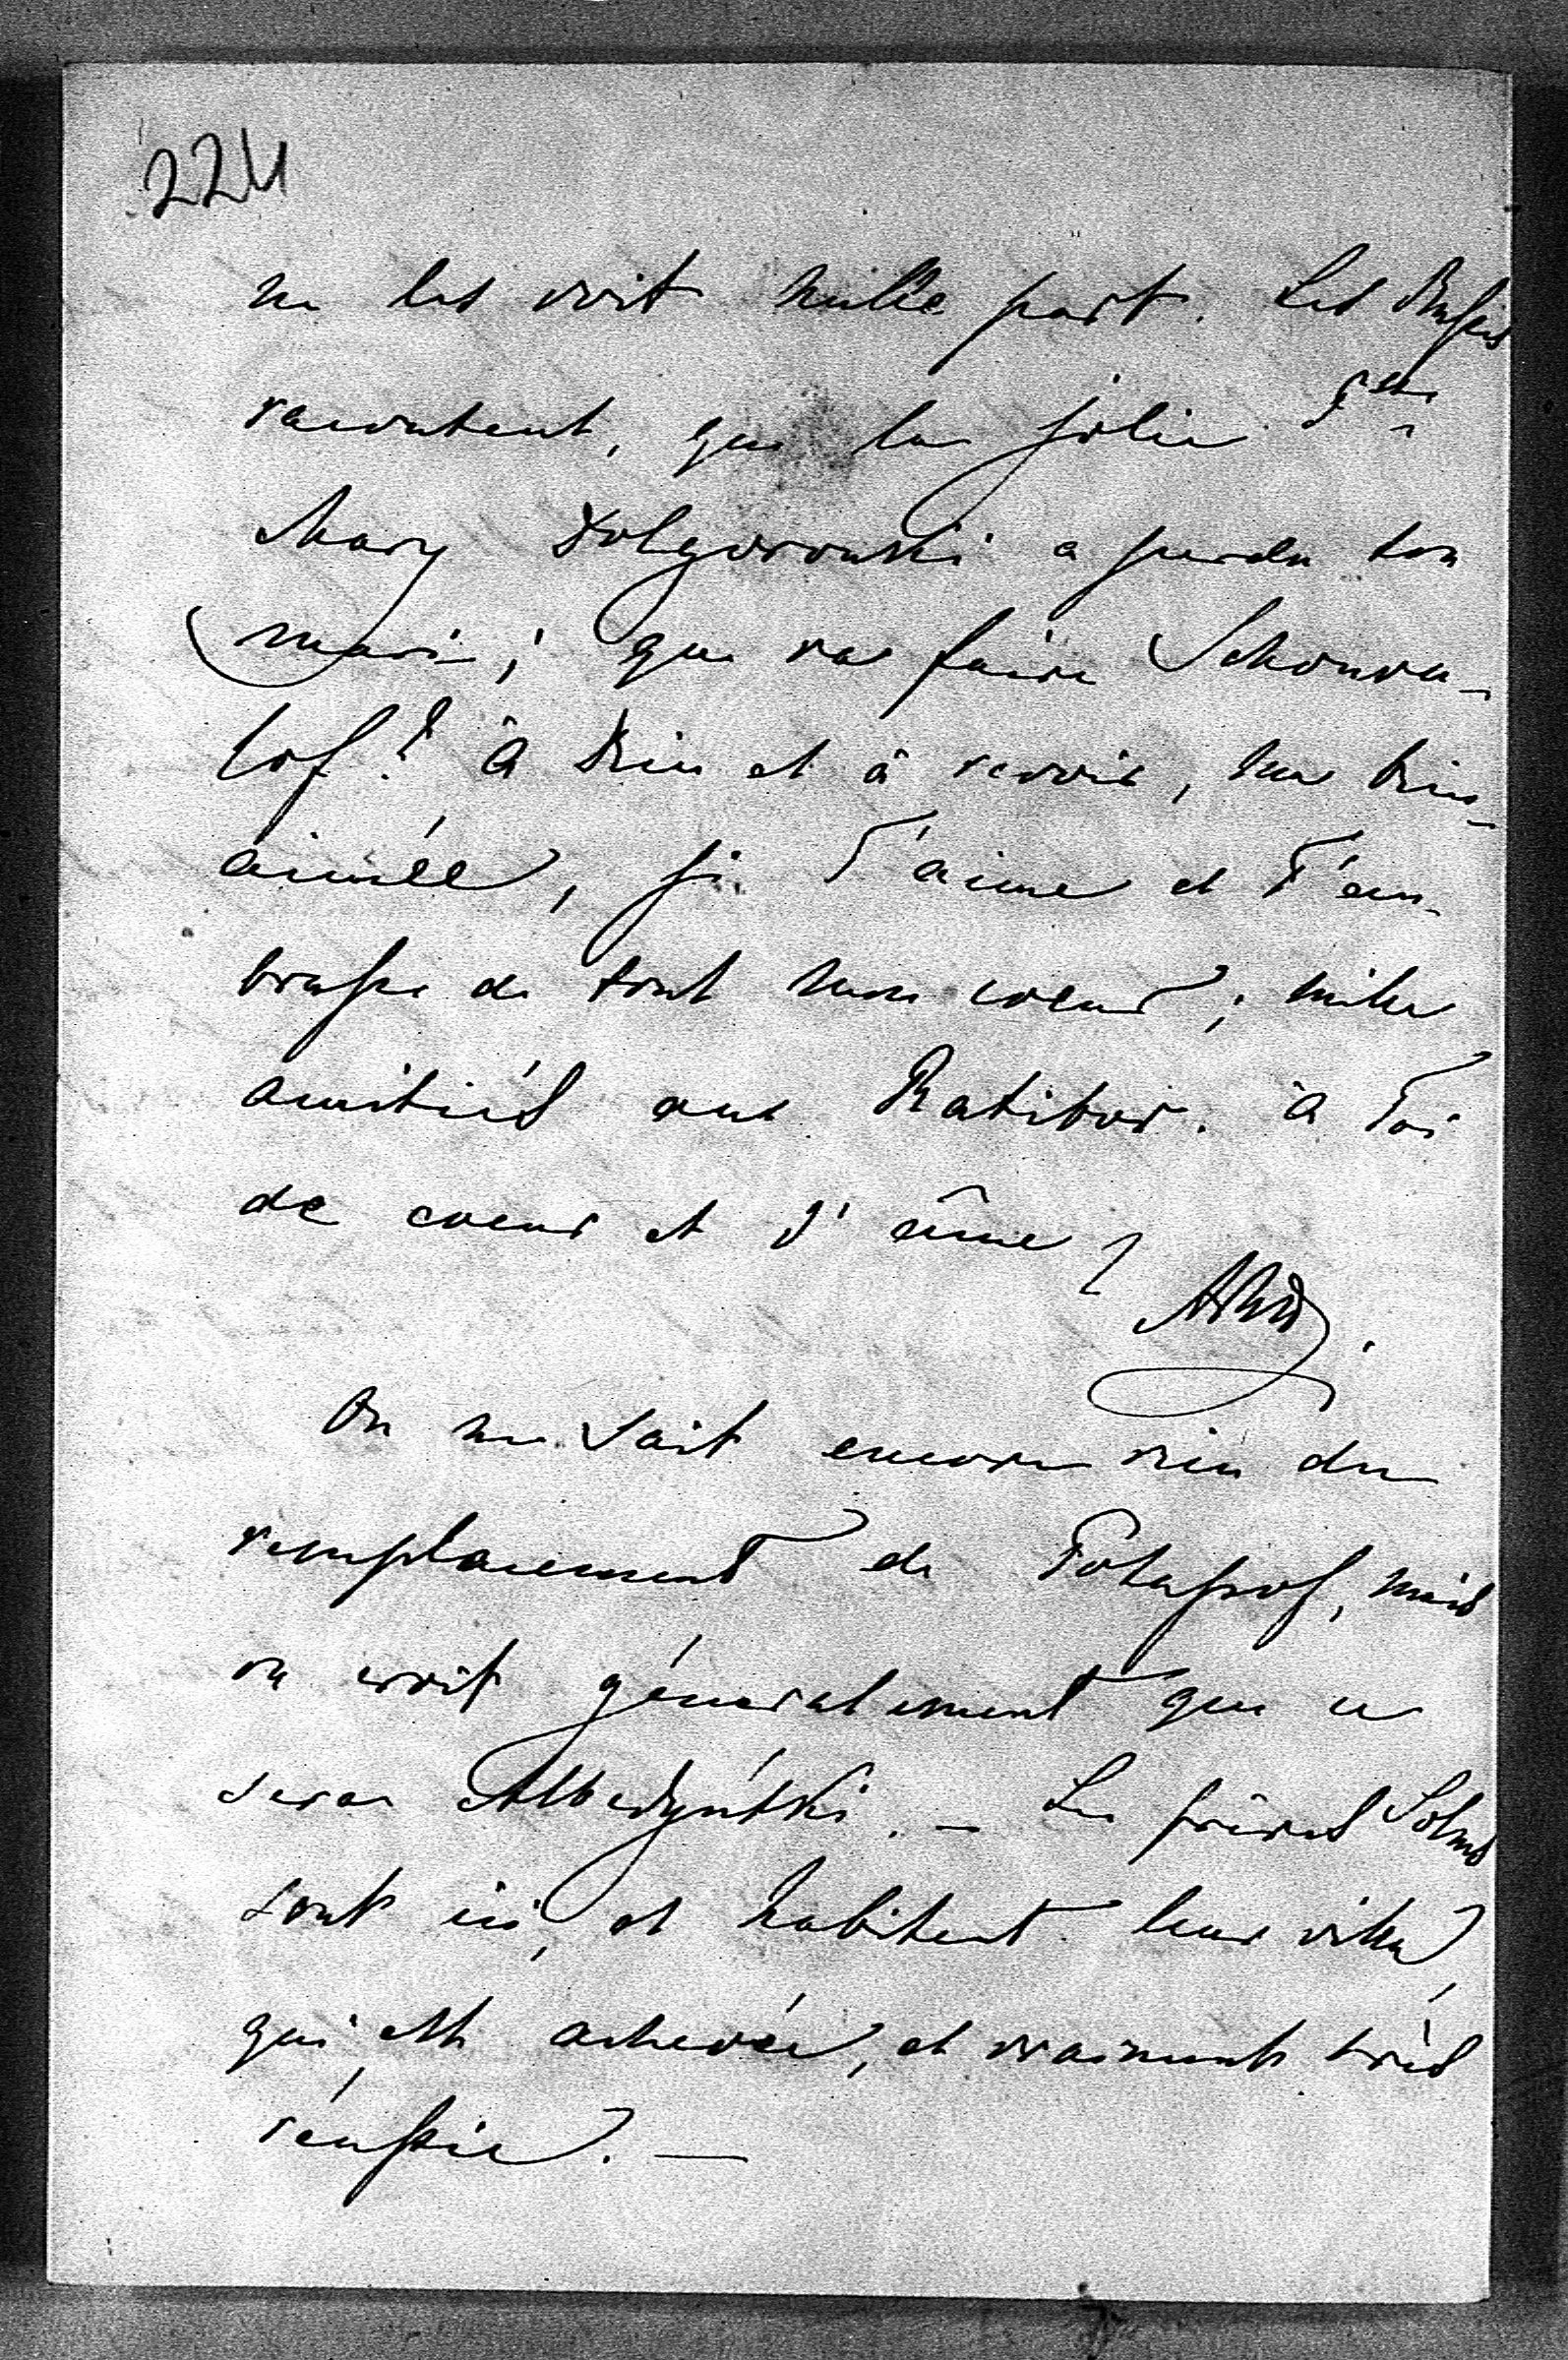 224
ne les voit nulle part. Les Russes
racontent, que la jolie Psse
Mary Dolgorouki a perdu son
mari; que va faire Schouva-
lof? à Dieu et à revoir, ma bien-
aimée, je T'aime et T'em-
brasse de tout mon coeur; mille
amitiés aux Ratibor. à Toi
de coeur et d'âme
On ne sait encore rien du
remplacement de Potapof, mais
on croit généralement que ce
sera Albedynski. — Les frères Solms
sont ici, et habitent leur villa,
qui est achevée, et vraiment très
réussie. —